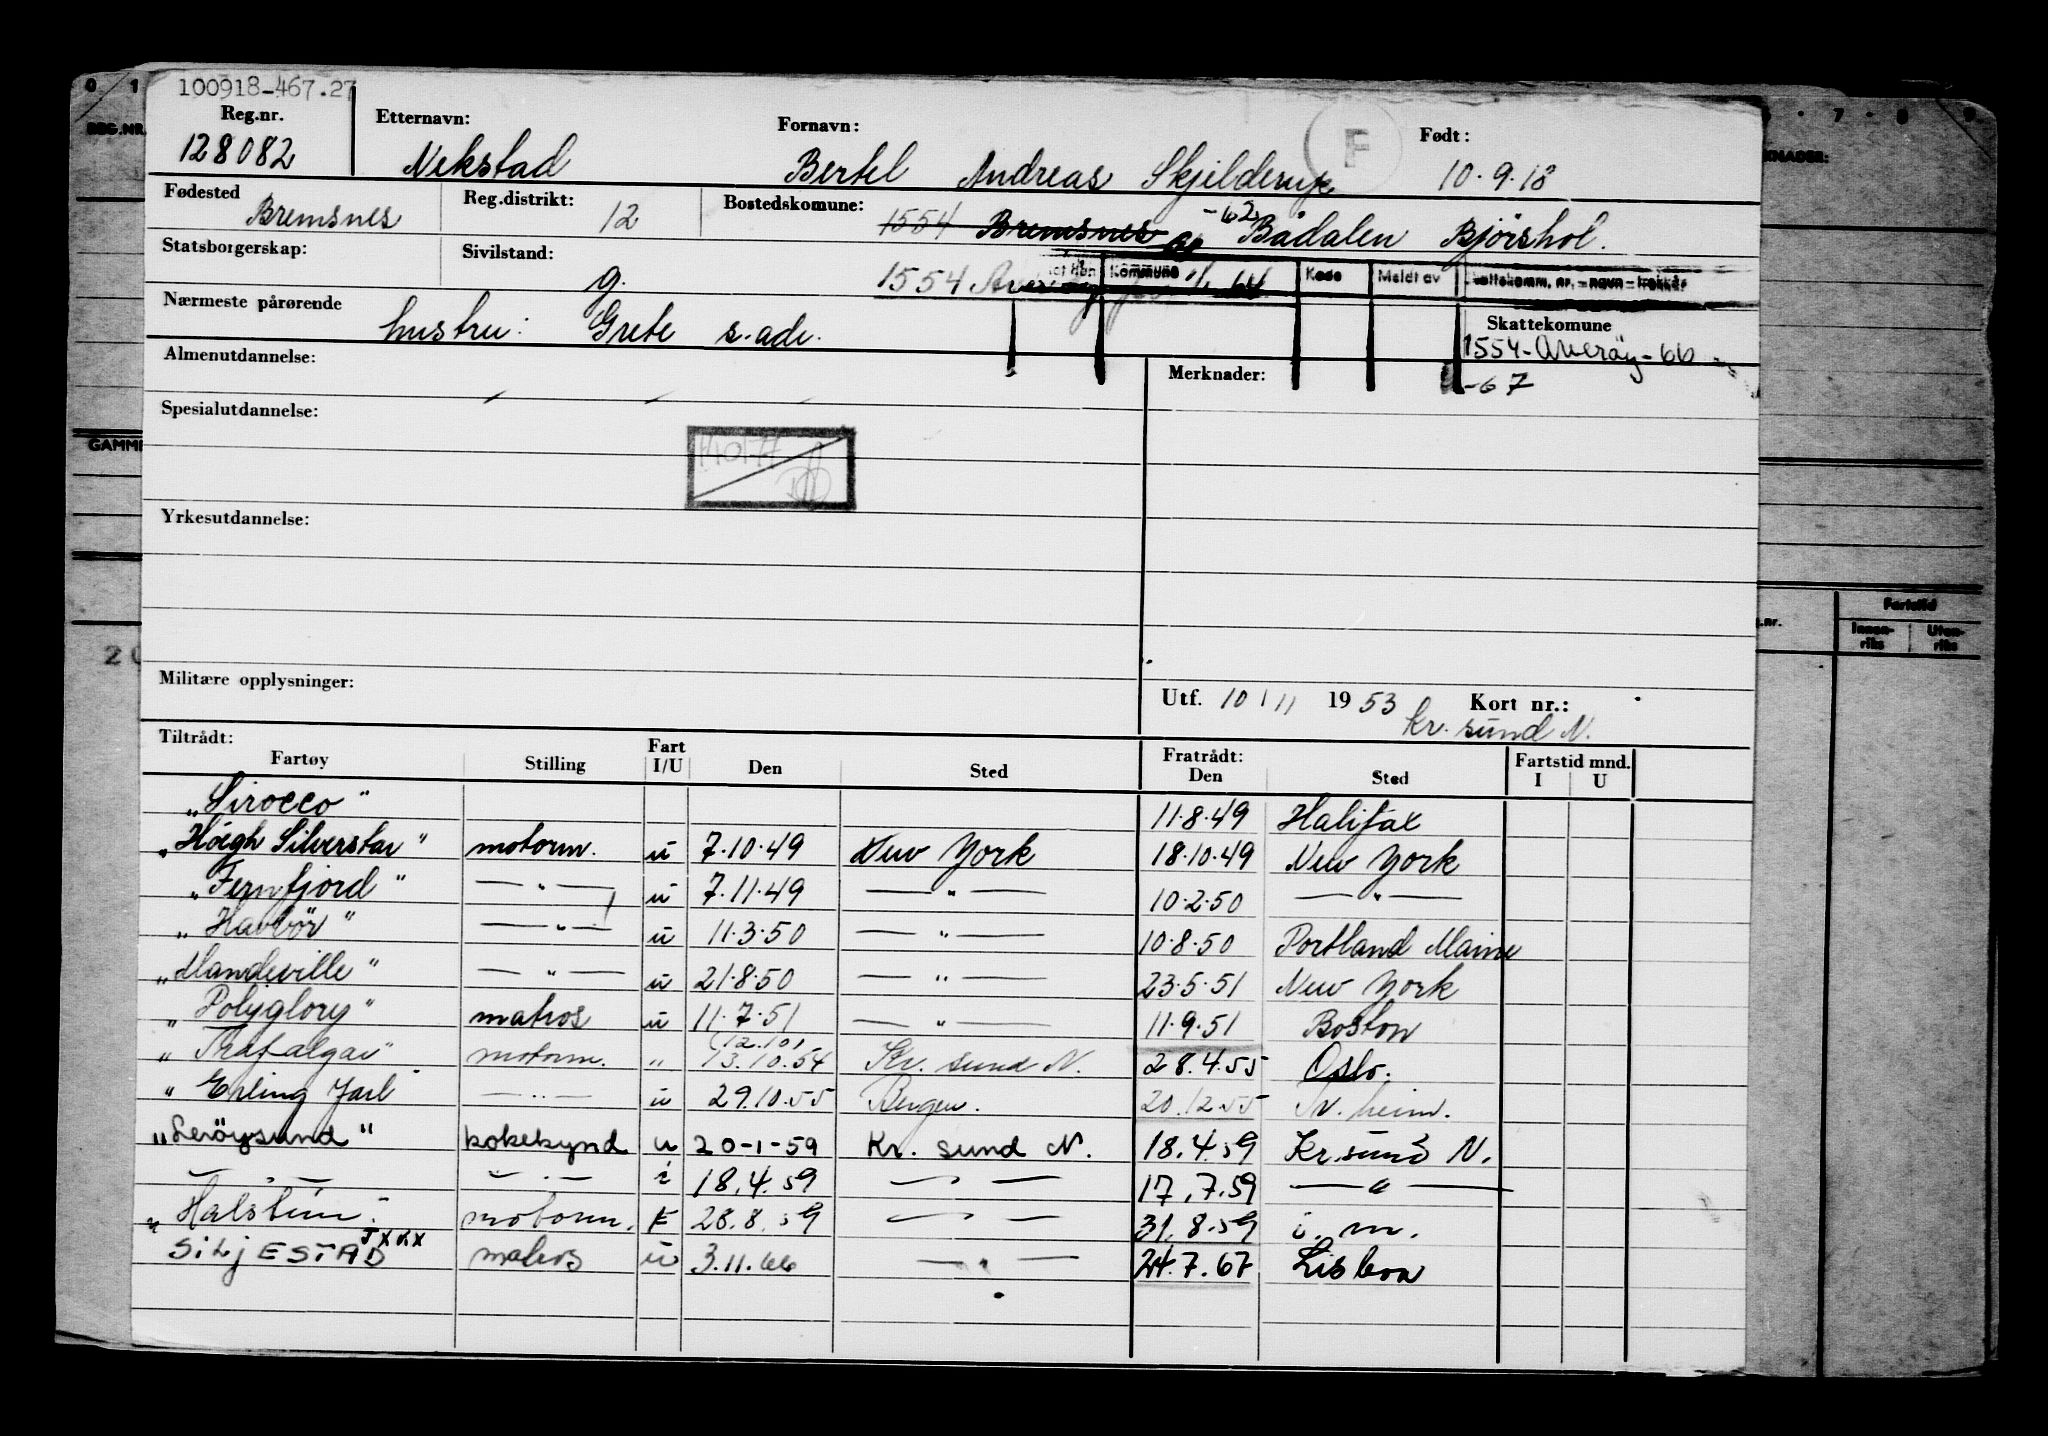 100918-467.27
Reg.nr. Etternavn: Fornavn: F Født:
128082 Nekstad Bertel Andreas Skjelderup 10.9.18
Fødested Bremsnes Reg.distrikt: 12 Bostedskomune: 1554 Bremsnes -62 Bådalen Bjørshol.
Statsborgerskap: Sivilstand: g. 1554 Averøy 1/1 64 Kommune Kode Meldt av Skattekomm. nr. - navn - trekkår
Nærmeste pårørende hustru: Grete s. adr. Skattekomune
1554-Averøy-66
-67
Almenutdannelse: Merknader:
Spesialutdannelse:
Yrkesutdannelse:
Militære opplysninger:
Utf. 10/11 1953 Kort nr.:
Kr. sund N.
Tiltrådt: Fartøy Stilling Fart I/U Den Sted Fratrådt: Den Sted Fartstid mnd. I U
"Sirocco" 11.8.49 Halifax
"Höegh Silverstar" motorm. u 7.10.49 New York 18.10.49 New York
"Fernfjord" — " — u 7.11.49 — " — 10.2.50 — " —
"Havbör" — " — u 11.3.50 — " — 10.8.50 Portland Maine
"Mandeville" — " — u 21.8.50 — " — 23.5.51 New York
"Polyglory" matros u 11.7.51 — " — 11.9.51 Boston
(12.10)
"Trafalgar" motorm. " 13.10.54 Kr. sund N. 28.4.55 Oslo.
"Erling Jarl" — " — u 29.10.55 Bergen. 20.12.55 Tr.heim.
"Lerøysund" kokekynd u 20-1-59 Kr. sund N. 18.4.59 Kr.sund N.
— " — — " — i 18.4.59 — " — 17.7.59 — " —
"Halstein" motorm. F 28.8.59 — " — 31.8.59 i. m.
SiljESTAD JXXX matros u 3.11.66 — " — 24.7.67 Lisboa